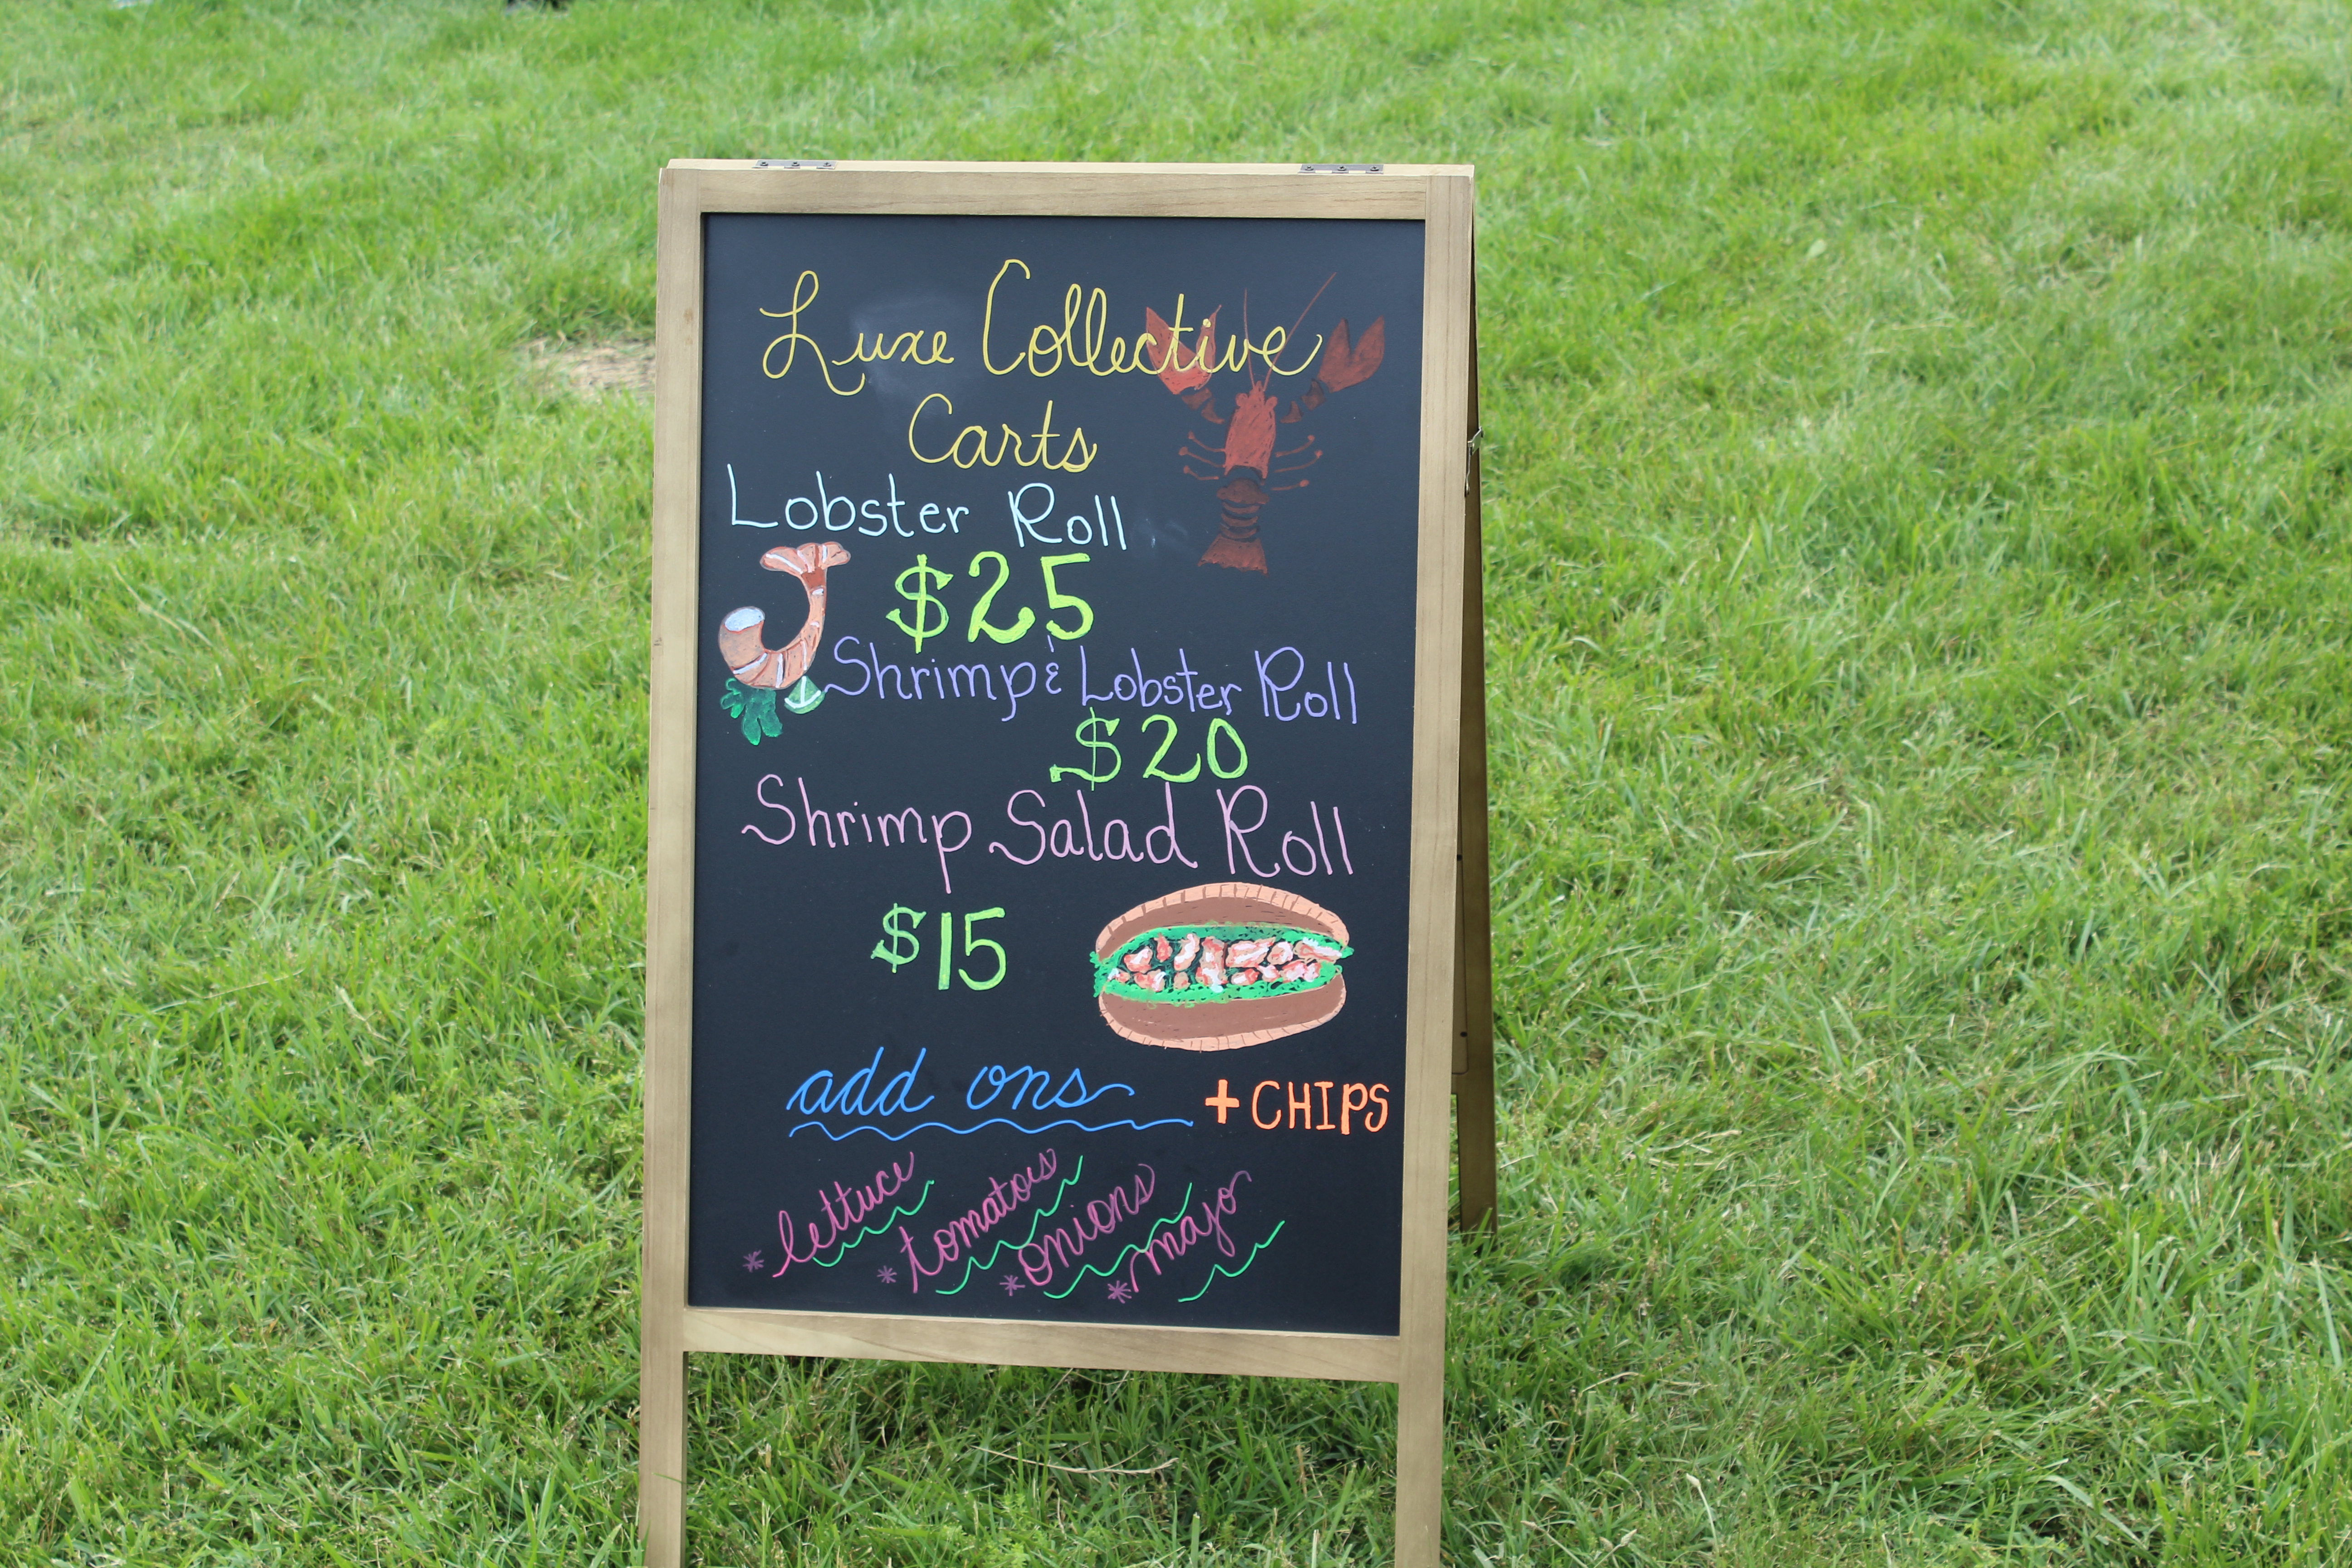 Luxe Collective
Carts
Lobster Roll
$25
Shrimp & Lobster Roll
$20
Shrimp Salad Roll
$15
add ons + CHIPS
* lettuce
* tomatoes
* onions
* majo